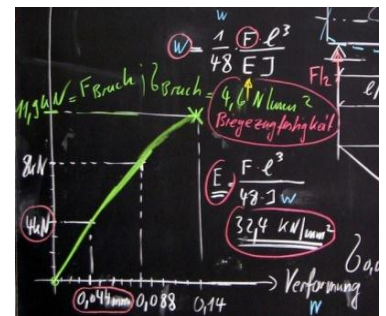 w
w = 1/48 · F · l³ / E J
11,9 kN = F Bruch ; δ Bruch = 4,6 N/mm²
Biegezugfestigkeit
F/2
8kN
E = F · l³ / 48 · J w
4kN
32,4 KN/mm²
0,044mm 0,088 0,14
Verformung
w